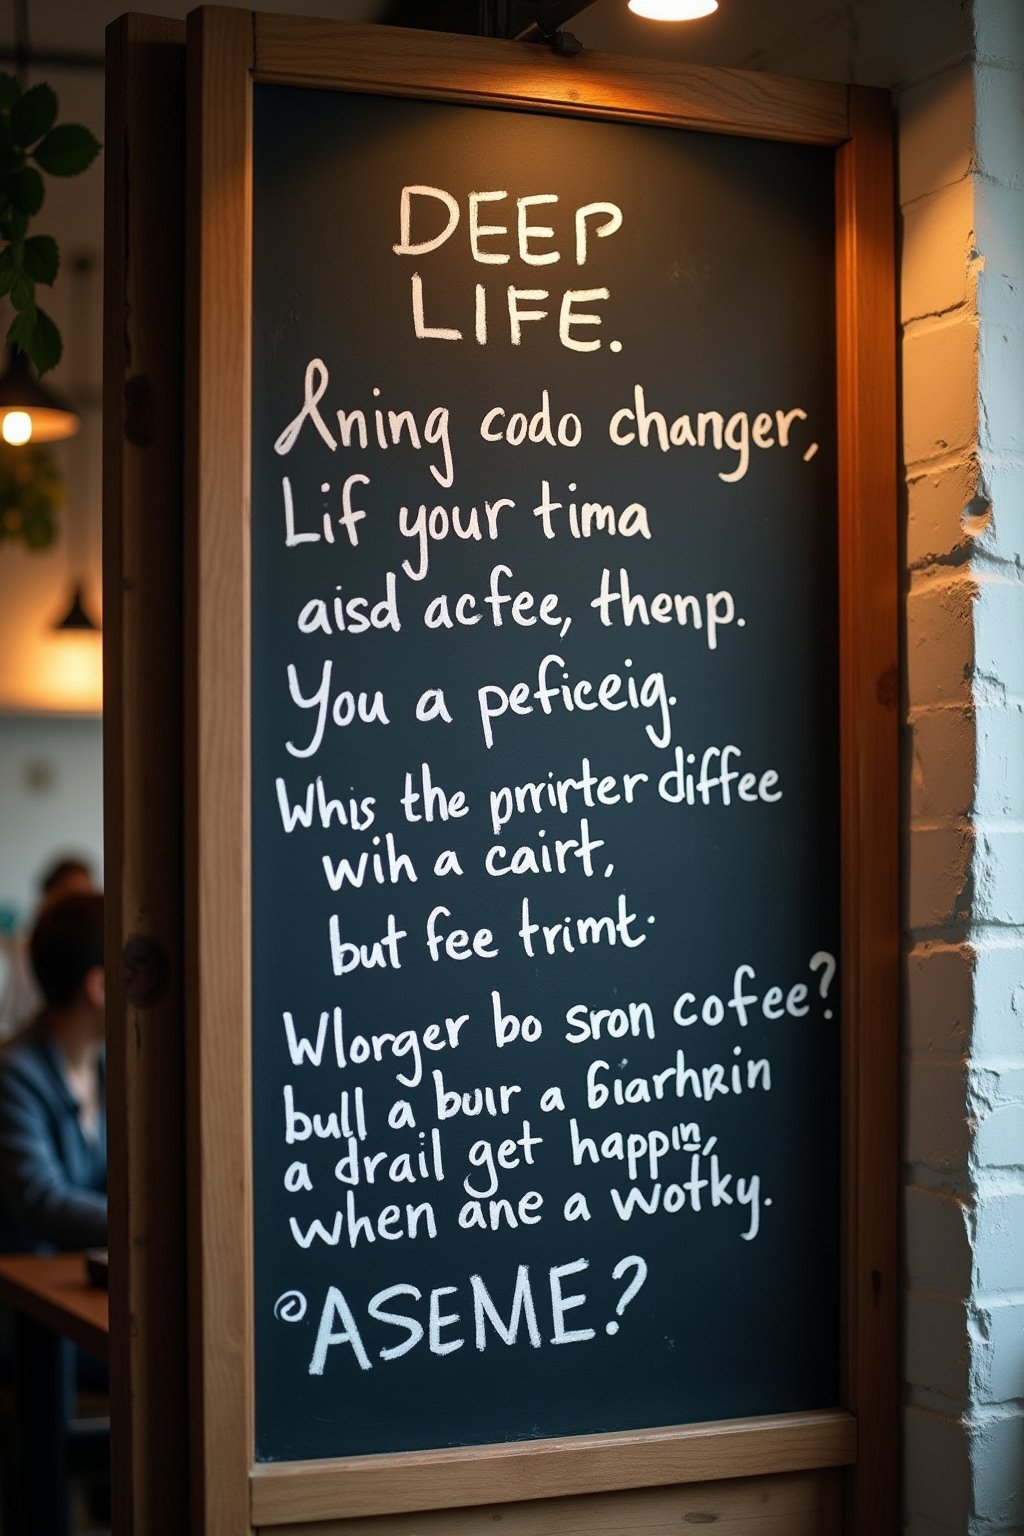 DEEP
LIFE.
Aning codo changer,
Lif your tima
aisd acfee, thenp.
You a peficeig.
Whis the pmrirter diffee
wih a cairt,
but fee trimt.
Wlorger bo sron cofee?
bull a buır a
a drail get happın,
when ane a wotky.
@ASEME?